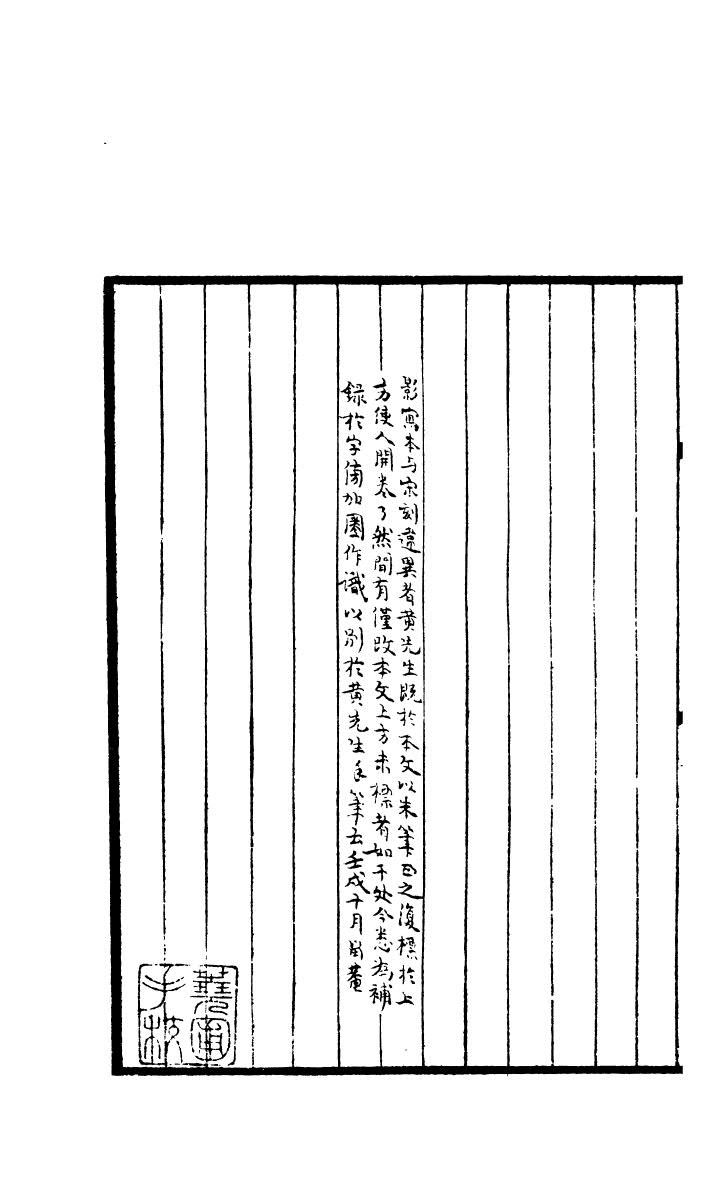 影寫本与宋刻違異者黄先生既於本文以朱筆改之復標於上
方使人開卷了然間有僅改本文上方未標者如干处今悉為補
録於字傍加圈作識以别於黄先生手筆云壬戌十月